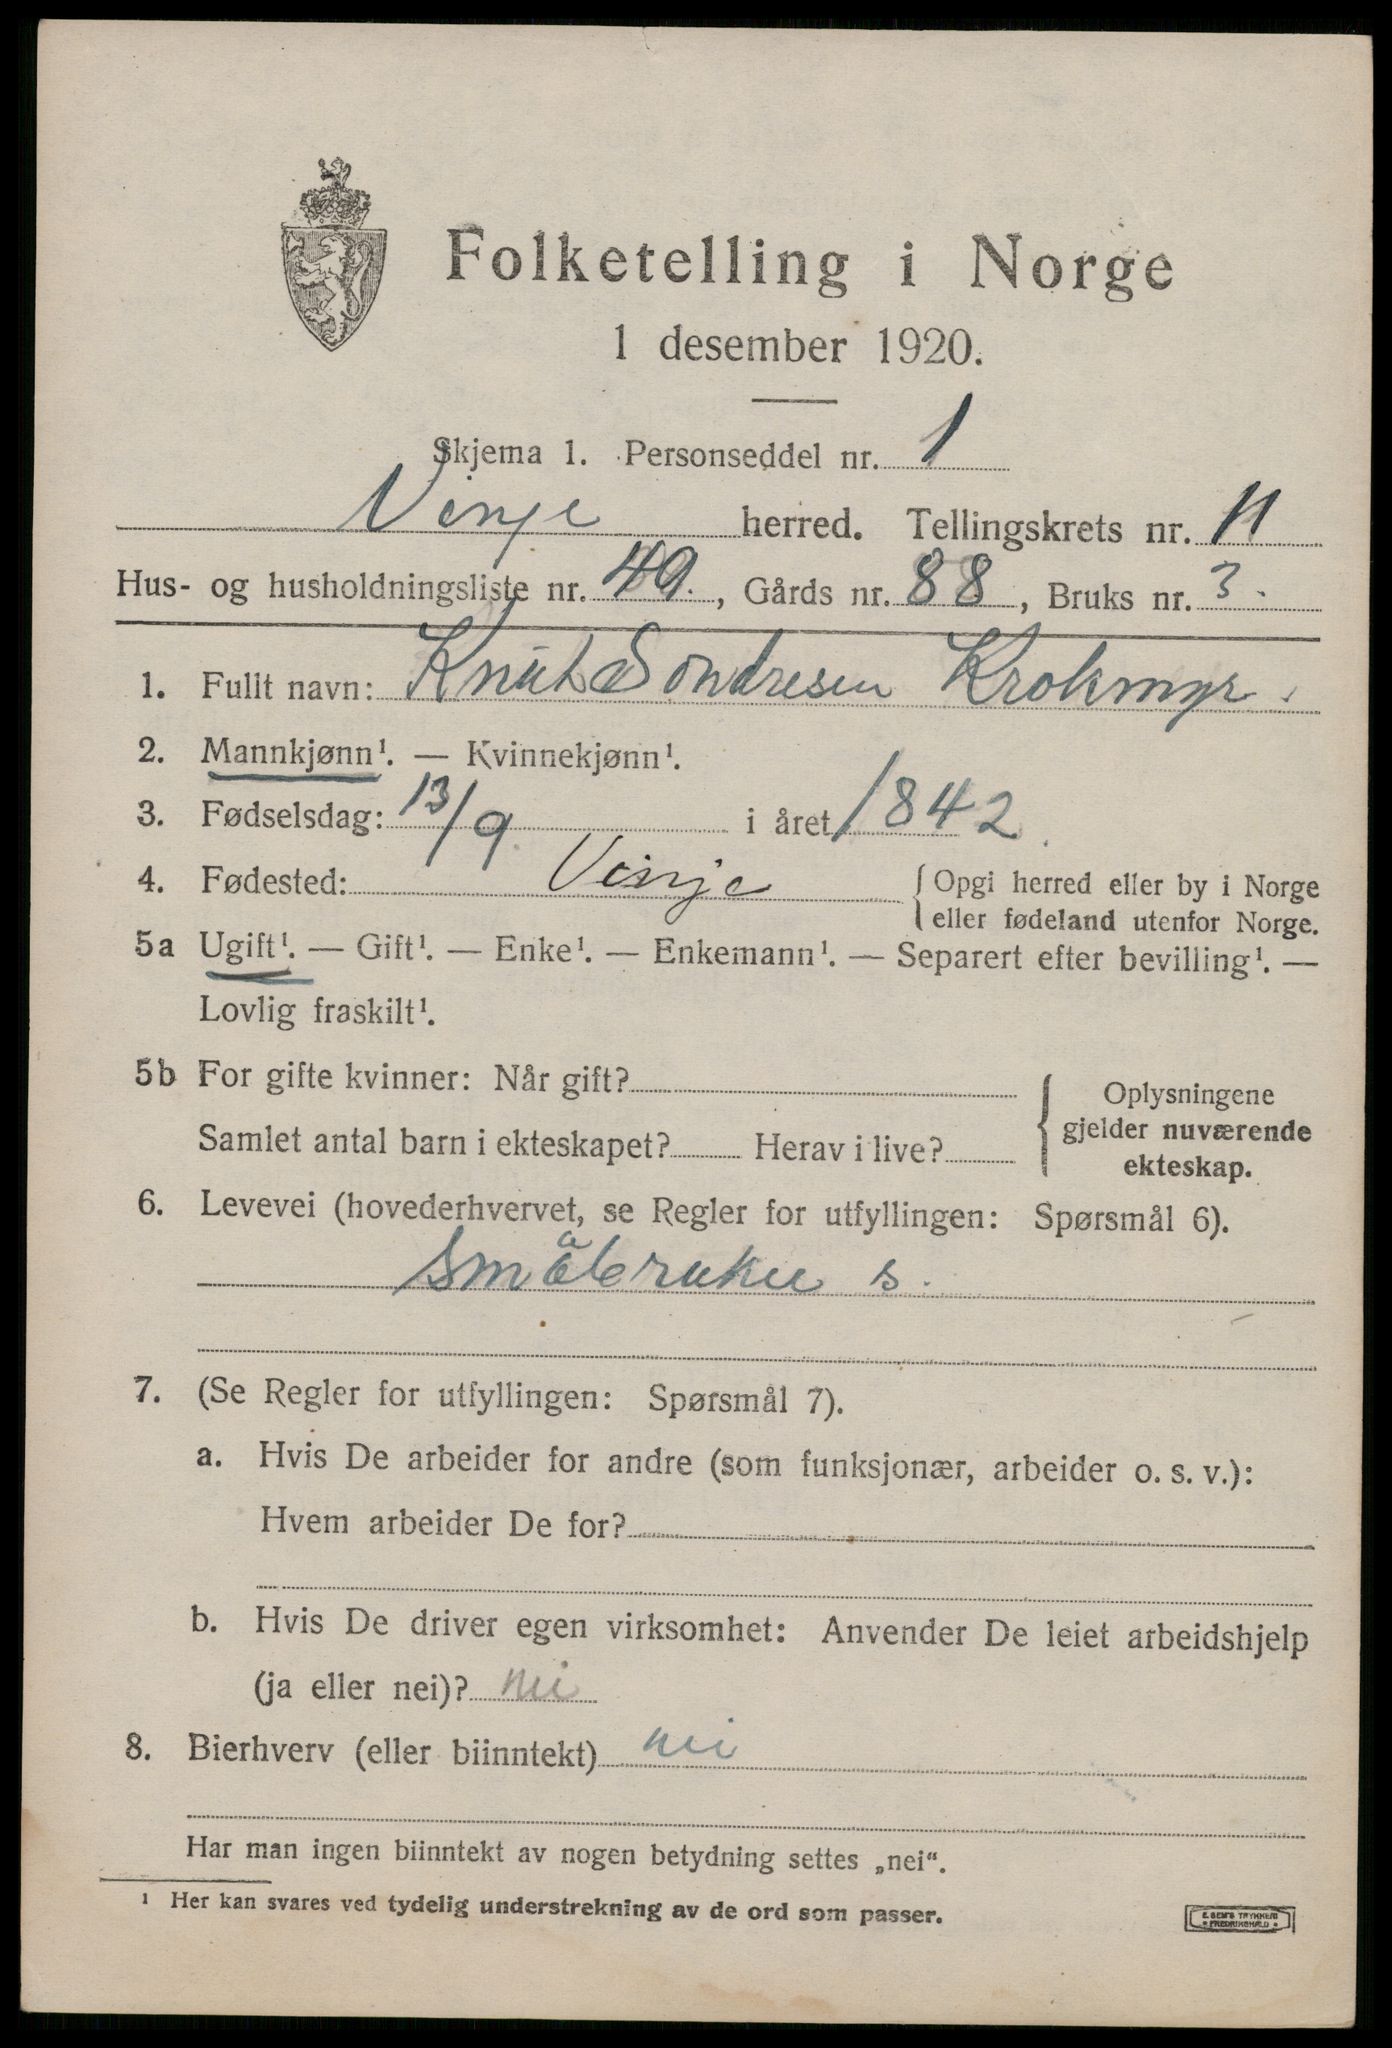 Folketelling i Norge
1 desember 1920.
Skjema 1. Personseddel nr. 1
Vinje herred. Tellingskrets nr. 11
Hus- og husholdningsliste nr. 49., Gårds nr. 88, Bruks nr. 3.
1. Fullt navn: Knut Sondresen Krokmyr.
2. Mannkjønn¹. — Kvinnekjønn¹.
3. Fødselsdag: 13/9 i året 1842
4. Fødested: Vinje { Opgi herred eller by i Norge
eller fødeland utenfor Norge.
5a Ugift¹. — Gift¹. — Enke¹. — Enkemann¹. — Separert efter bevilling¹. —
Lovlig fraskilt¹.
5b For gifte kvinner: Når gift?
Samlet antal barn i ekteskapet? Herav i live?
Oplysningene
gjelder nuværende
ekteskap.
6. Levevei (hovederhvervet, se Regler for utfyllingen: Spørsmål 6).
Småbruker s.
7. (Se Regler for utfyllingen: Spørsmål 7).
a. Hvis De arbeider for andre (som funksjonær, arbeider o. s. v.):
Hvem arbeider De for?
b. Hvis De driver egen virksomhet: Anvender De leiet arbeidshjelp
(ja eller nei)? nei
8. Bierhverv (eller biinntekt) nei
Har man ingen biinntekt av nogen betydning settes „nei“.
¹ Her kan svares ved tydelig understrekning av de ord som passer.
E. SEM'S TRYKKERI
• FREDRIKSHALD •